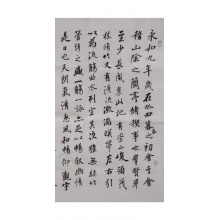 永和九年歲在癸丑暮春之初會于會
稽山陰之蘭亭脩禊事也群賢畢
至少長咸集此地有崇山峻領茂
林脩竹又有清流激湍暎帶左右引
以為流觴曲水列坐其次雖無絲竹
管絃之盛一觴一詠亦足以暢叙幽情
是日也天朗氣清惠風和暢仰觀宇